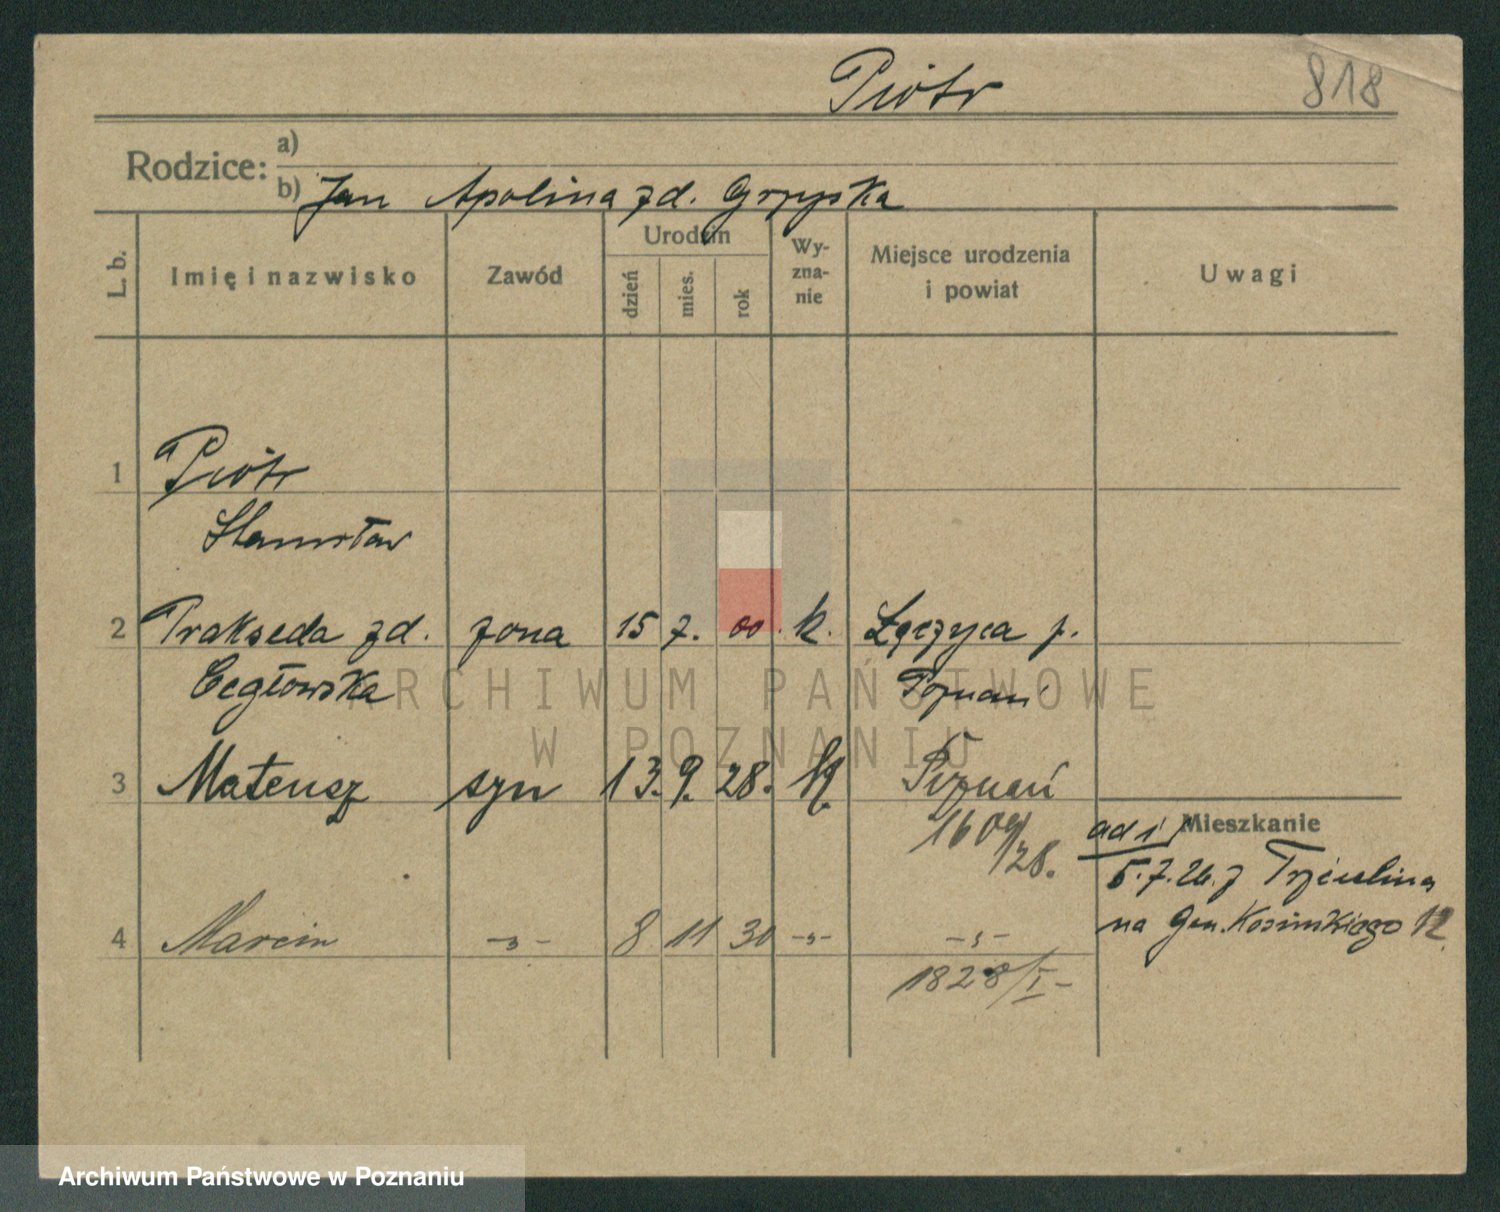 Piotr 818
Rodzice: a)
b) Jan Apolina zd. Grzyska
L. b. Imię i nazwisko Zawód Urodzin dzień mies. rok Wy-zna-nie Miejsce urodzenia i powiat Uwagi
1 Piotr
Stanisław
2 Prakseda zd. żona 15 7. 00. k. Łęczyca p.
Cegłowska Poznań
ARCHIWUM PAŃSTWOWE
W POZNANIU
3 Mateusz syn 13. 9. 28. k. Poznań
Mieszkanie
ad 1
/28.
5.7.26. z
na Gen. Kosińskiego 12
4 Marcin -„- 8 11 30 -„- -„-
1828/I-
Archiwum Państwowe w Poznaniu